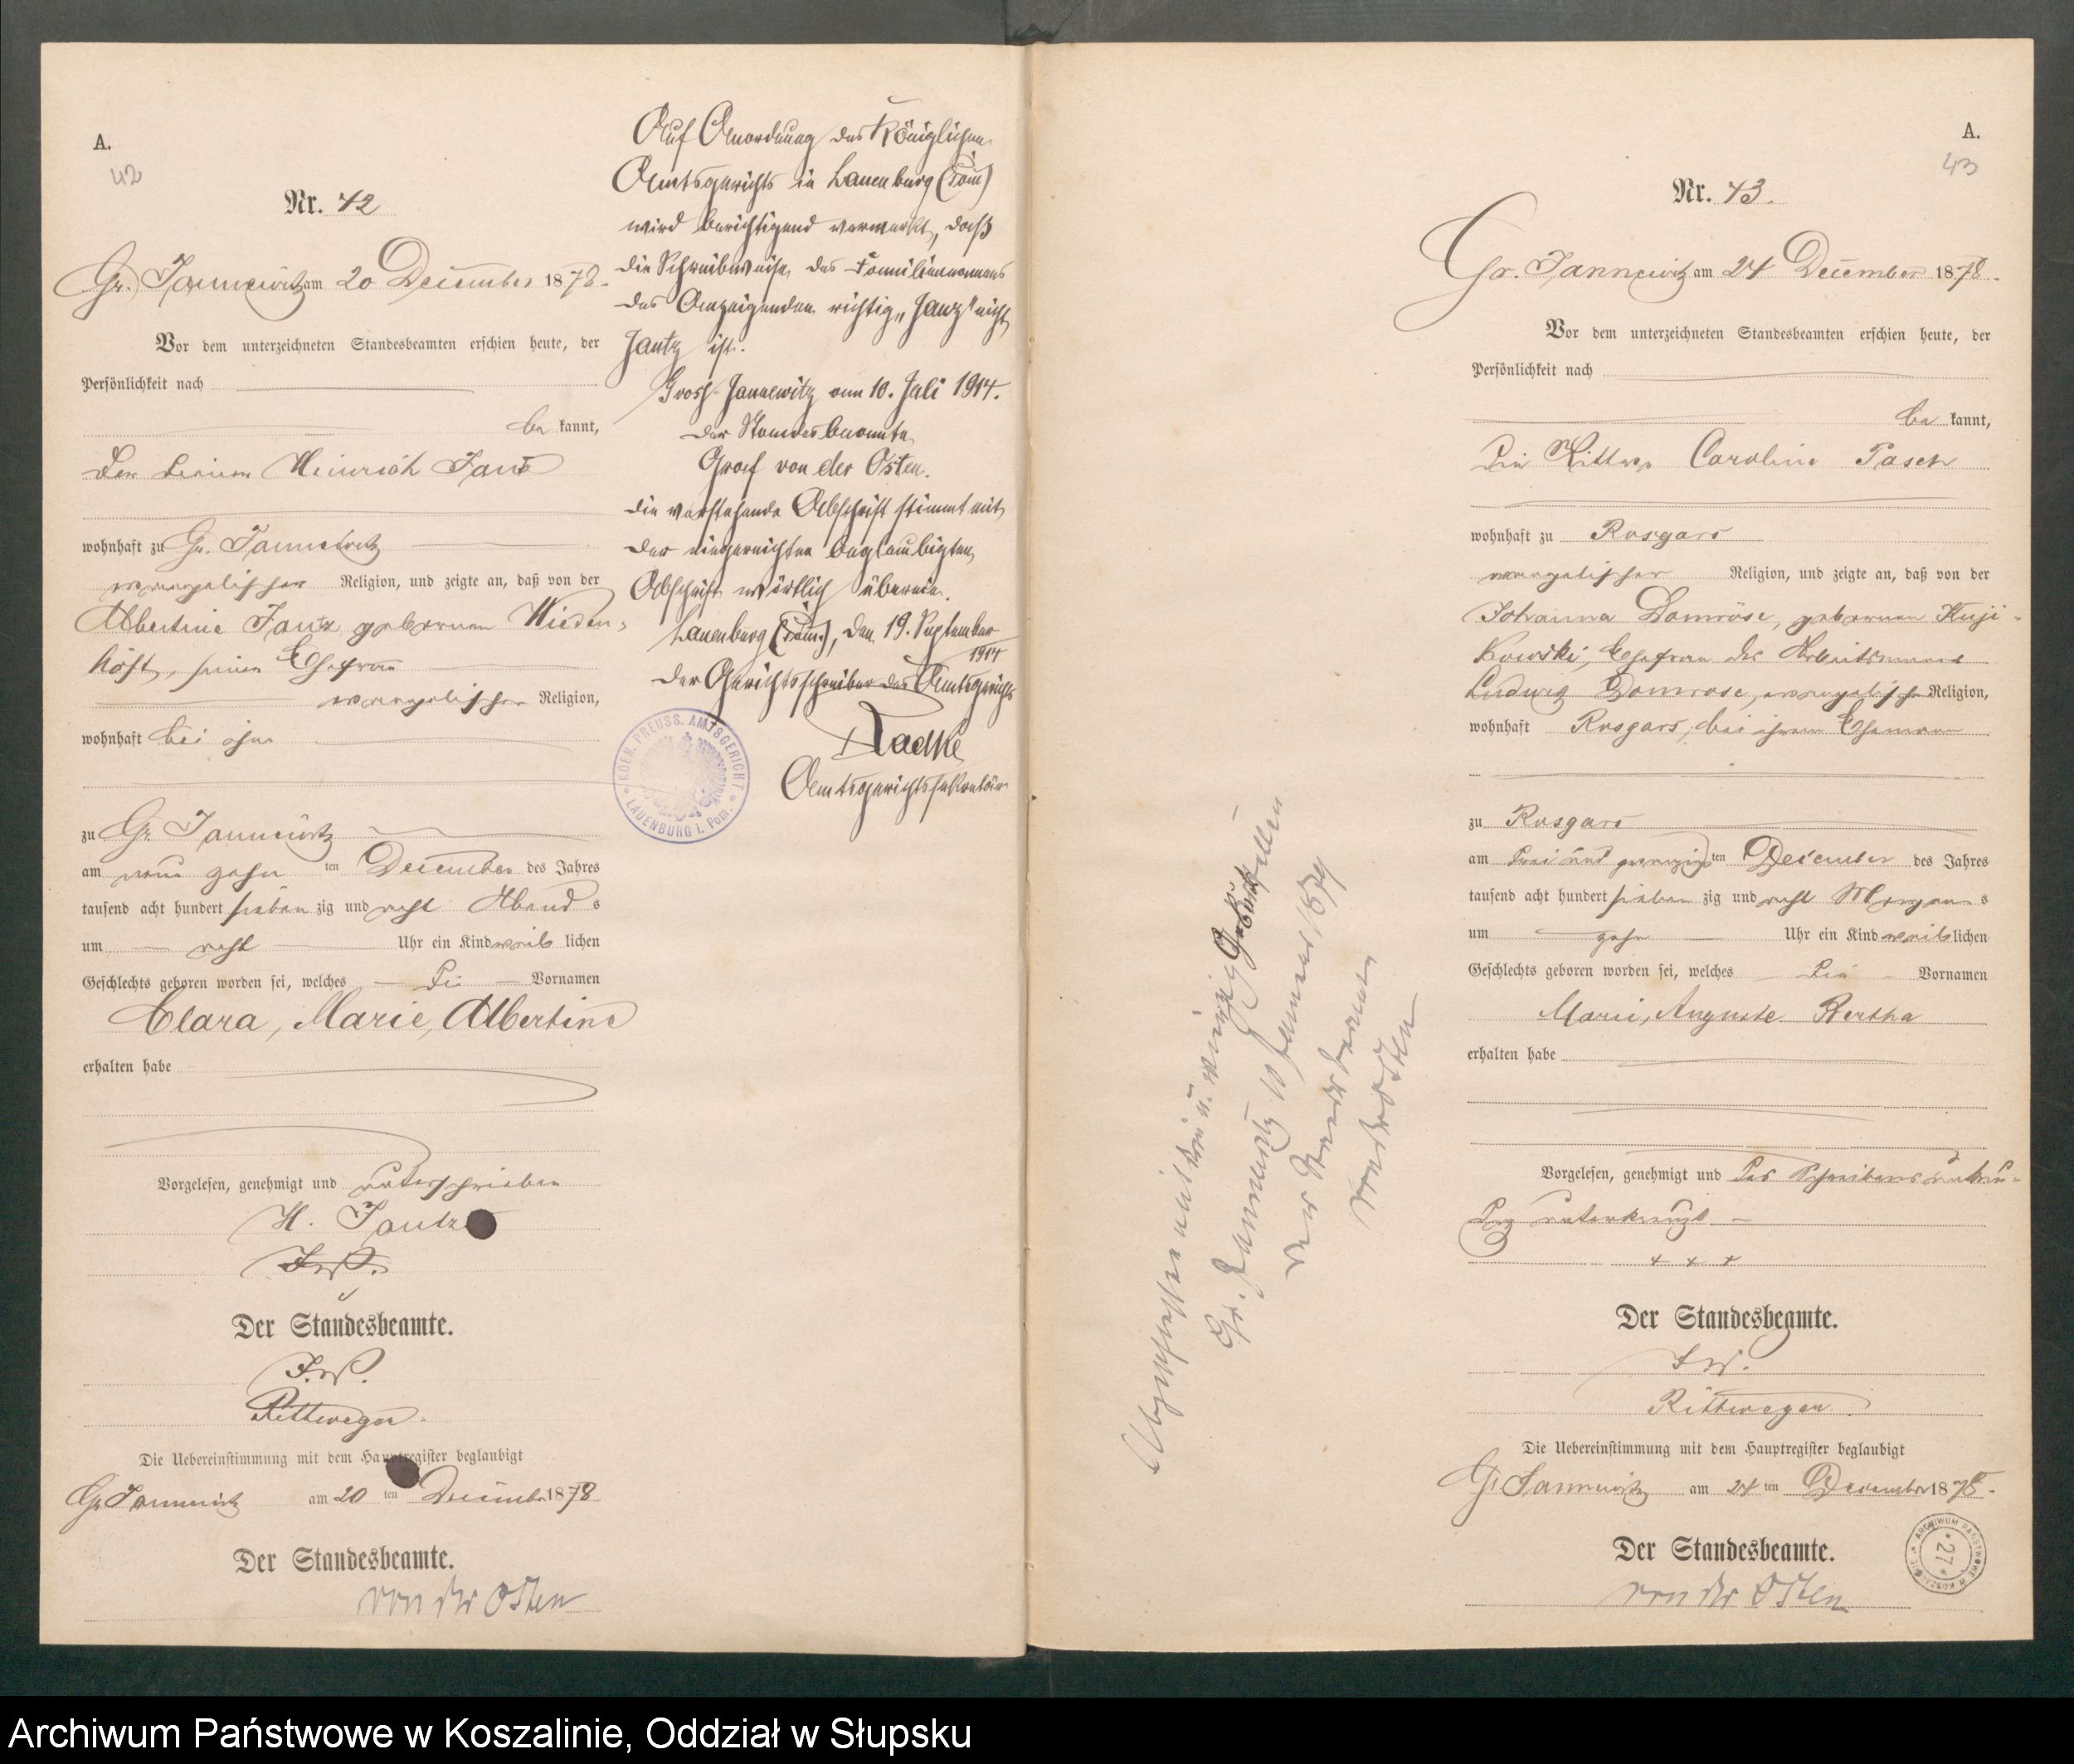 A.
42
Nr. 42
Gr. Jannewitz am 20 December 1878.
Vor dem unterzeichneten Standesbeamten erschien heute, der
Persönlichkeit nach
be kannt,
Heinrich Jantz
wohnhaft zu Gr. Jannewitz
evangelischer Religion, und zeigte an, daß von der
Albertine Janz geborenen Wieden-
höft, seiner Ehefrau
evangelischer Religion,
wohnhaft bei ihm
zu Gr. Jannewitz
am neun zehn ten December des Jahres
tausend acht hundert sieben zig und acht Abend s
um acht Uhr ein Kind weib lichen
Geschlechts geboren worden sei, welches die Vornamen
Clara, Marie, Albertine
erhalten habe
Vorgelesen, genehmigt und unterschrieben
H. Jantz
Der Standesbeamte.
Rittwegen.
Die Uebereinstimmung mit dem Hauptregister beglaubigt
Gr Jannewitz am 20 ten December 1878
Der Standesbeamte.
von der Osten
Auf Anordnung des Königlichen
Amtsgerichts in Lauenburg (Pom)
wird berichtigend vermerkt, daß
die Schreibweise des Familiennamens
des Anzeigenden richtig „Janz" nicht
Jantz ist.
Gross Jannewitz am 10. Juli 1914.
Der Standesbeamte
Graf von der Osten.
Die vorstehende Abschrift stimmt mit
der eingereichten beglaubigten
Abschrift wörtlich überein.
Lauenburg (Pom.), den 19. September
1914
Der Gerichtsschreiber des Amtsgerichts
Radtke
Amtsgerichtssekretär
KOEN. PREUSS. AMTSGERICHT
LAUENBURG i. Pom.
A.
43
Nr. 43.
Gr. Jannewitz am 24 December 1878.
Vor dem unterzeichneten Standesbeamten erschien heute, der
Persönlichkeit nach
be kannt,
Die Wittwe Caroline Pasch
wohnhaft zu Rosgars
evangelischer Religion, und zeigte an, daß von der
Johanna Domröse, geborenen Kuji-
kowski, Ehefrau des Arbeitsmann
Ludwig Domröse, evangelischer Religion,
wohnhaft Rosgars, bei ihrem Ehemann
zu Rosgars
am drei und zwanzigsten December des Jahres
tausend acht hundert sieben zig und acht Morgen s
um zehn Uhr ein Kind weib lichen
Geschlechts geboren worden sei, welches die Vornamen
Marie, Auguste Bertha
erhalten habe
Vorgelesen, genehmigt und des Schreibens unkun-
dig unterkreuzt
+ + +
Der Standesbeamte.
Rittwegen.
Die Uebereinstimmung mit dem Hauptregister beglaubigt
Gr Jannewitz am 24 ten December 1878.
Der Standesbeamte.
von der Osten
Abgeschlossen mit drei u. vierzig Geburtsfällen
Gr. Jannewitz 10 Januar 1879
Der Standesbeamte
von der Osten
ARCHIWUM PAŃSTWOWE W KOSZALINIE
27
Archiwum Państwowe w Koszalinie, Oddział w Słupsku